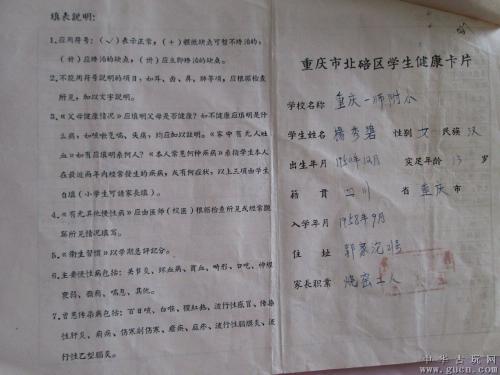 填表說明：
1.应用符号：（√）表示正常，（+）輕微缺点可暫不矫治的，
（卄）应矫治的缺点，（卅）应立即矫治的缺点。
2.不能用符号說明的項目，如耳、齿、鼻、肺等項，应根据检查
所見，加以文字說明。
3.《父母健康情况》应填明父母是否健康？如不健康应填明是什
么病，如咳嗽气喘，失痛，均应加以註明。《家中有无人
姓 》如有应填明系何人？《本人常患何种疾病》系指学生本人
在最近两年内經常發生的疾病，或有何症状，以上三項由学生
自填（小学生可請家长填）。
4.《有无其他慢性病》应由医师（校医）根据检查所見或經常观
察所見情况填写。
5.《衛生習慣》以学期总評記分。
6.主要慢性病包括：关节炎、坏血病、貧血、畸形、口吃、神經
衰弱、癫痫、喘息、其他。
7.曾患传染病包括：百日咳、白喉、猩紅热、流行性感冒、传染
性肝炎、痢病、伤寒副伤寒、瘧疾、麻疹、流行性腦膜炎、流
行性乙型腦炎。
重庆市北碚区学生健康卡片
学校名称 重庆一师附小
学生姓名 秀碧 性别 女 民族 汉
出生年月 1950年12月 实足年龄 13 岁
籍贯 四川 省 重庆 市
入学年月 1958年9月
住址 郭家沱
家长职業 烧窑工人
中华古玩网
www.gucn.com